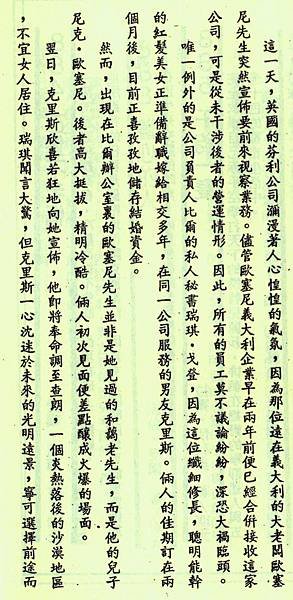 這一天，英國的芬利公司瀰漫著人心惶惶的氣氛，因為那位遠在義大利的大老闆歐塞
尼先生突然宣佈要前來視察業務。儘管歐塞尼義大利企業早在兩年前便已經合併接收這家
公司，可是從未干涉後者的營運情形。因此，所有的員工莫不議論紛紛，深恐大禍臨頭。
唯一例外的是公司負責人比爾的私人秘書瑞琪．戈登，因為這位纖細修長，聰明能幹
的紅髮美女正準備辭職嫁給相交多年，在同一公司服務的男友克里斯。倆人的佳期訂在兩
個月後，目前正喜孜孜地儲存結婚資金。
然而，出現在比爾辦公室裏的歐塞尼先生並非是她見過的和藹老先生，而是他的兒子
尼克．歐塞尼。後者高大挺拔，精明冷酷。倆人初次見面便差點釀成火爆的場面。
翌日，克里斯欣喜若狂地向她宣佈，他即將奉命調至查朗，一個炎熱落後的沙漠地區
，不宜女人居住。瑞琪聞言大驚，但克里斯一心沈迷於未來的光明遠景，寧可選擇前途而